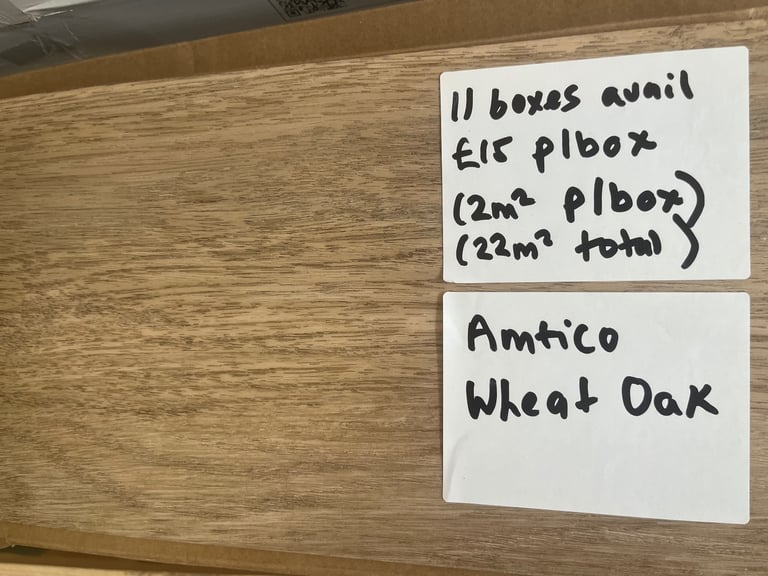 11 boxes avail
£15 p/box
(2m² p/box)
(22m² total)
Amtico
Wheat Oak